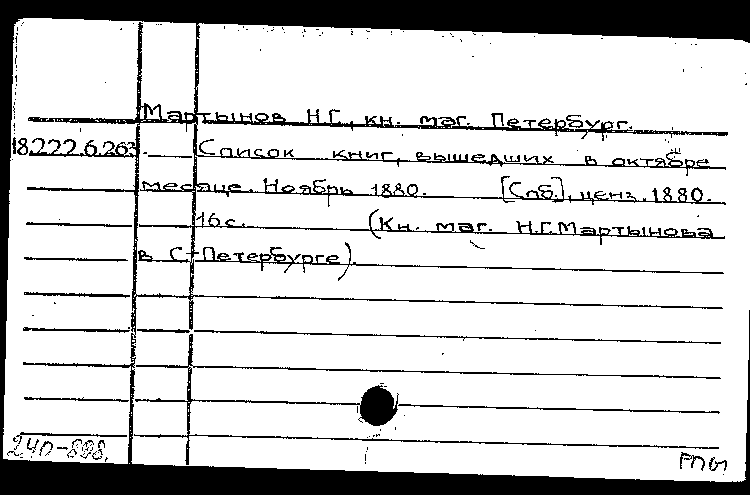 Мартынов Н.Г., кн. маг. Петербург.
18.222.6.263. Список книг, вышедших в октябре
месяце. Ноябрь 1880. [Спб.], ценз. 1880.
16 с. (Кн. маг. Н.Г.Мартынова
в С-Петербурге).
240-898.